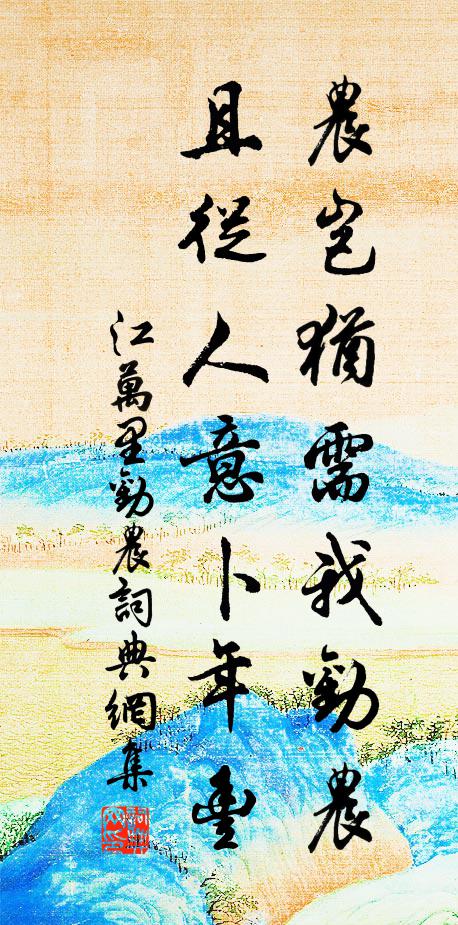 農豈猶需我勸農
且從人意卜年豐
江萬里勸農詞典網集